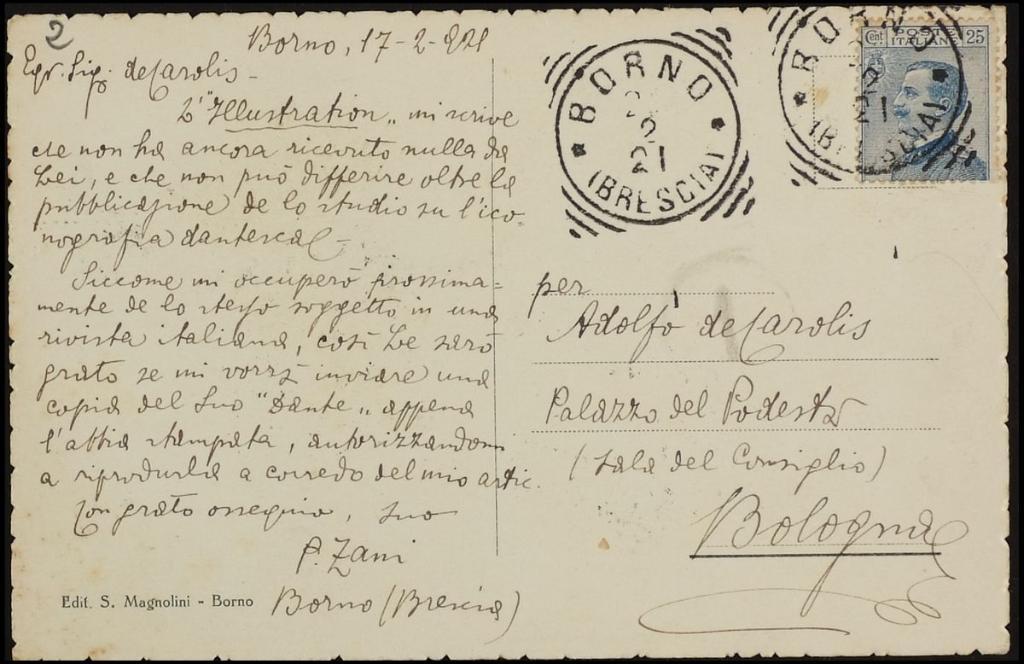 2
Borno, 17-2-921
Egr. Sig. deCarolis -
L'"Illustration" mi scrive
che non ha ancora ricevuto nulla da
Lei, e che non può differire oltre la
pubblicazione de lo studio su l'ico=
nografia dantesca -
Siccome mi occuperò prossima=
mente de lo stesso soggetto in una
rivista italiana, così Le sarò
grato se mi vorrà inviare una
copia del Suo "Dante" appena
l'abbia stampata, autorizzandomi
a riprodurla a corredo del mio artic.
Con grato ossequio, Suo
P. Zani
Borno (Brescia)
Edit. S. Magnolini - Borno
BORNO
2
21
(BRESCIA)
BORNO
21
(BRESCIA)
Cent. POSTE ITALIANE 25
per
Adolfo deCarolis
Palazzo del Podestà
(Sala del Consiglio)
Bologna